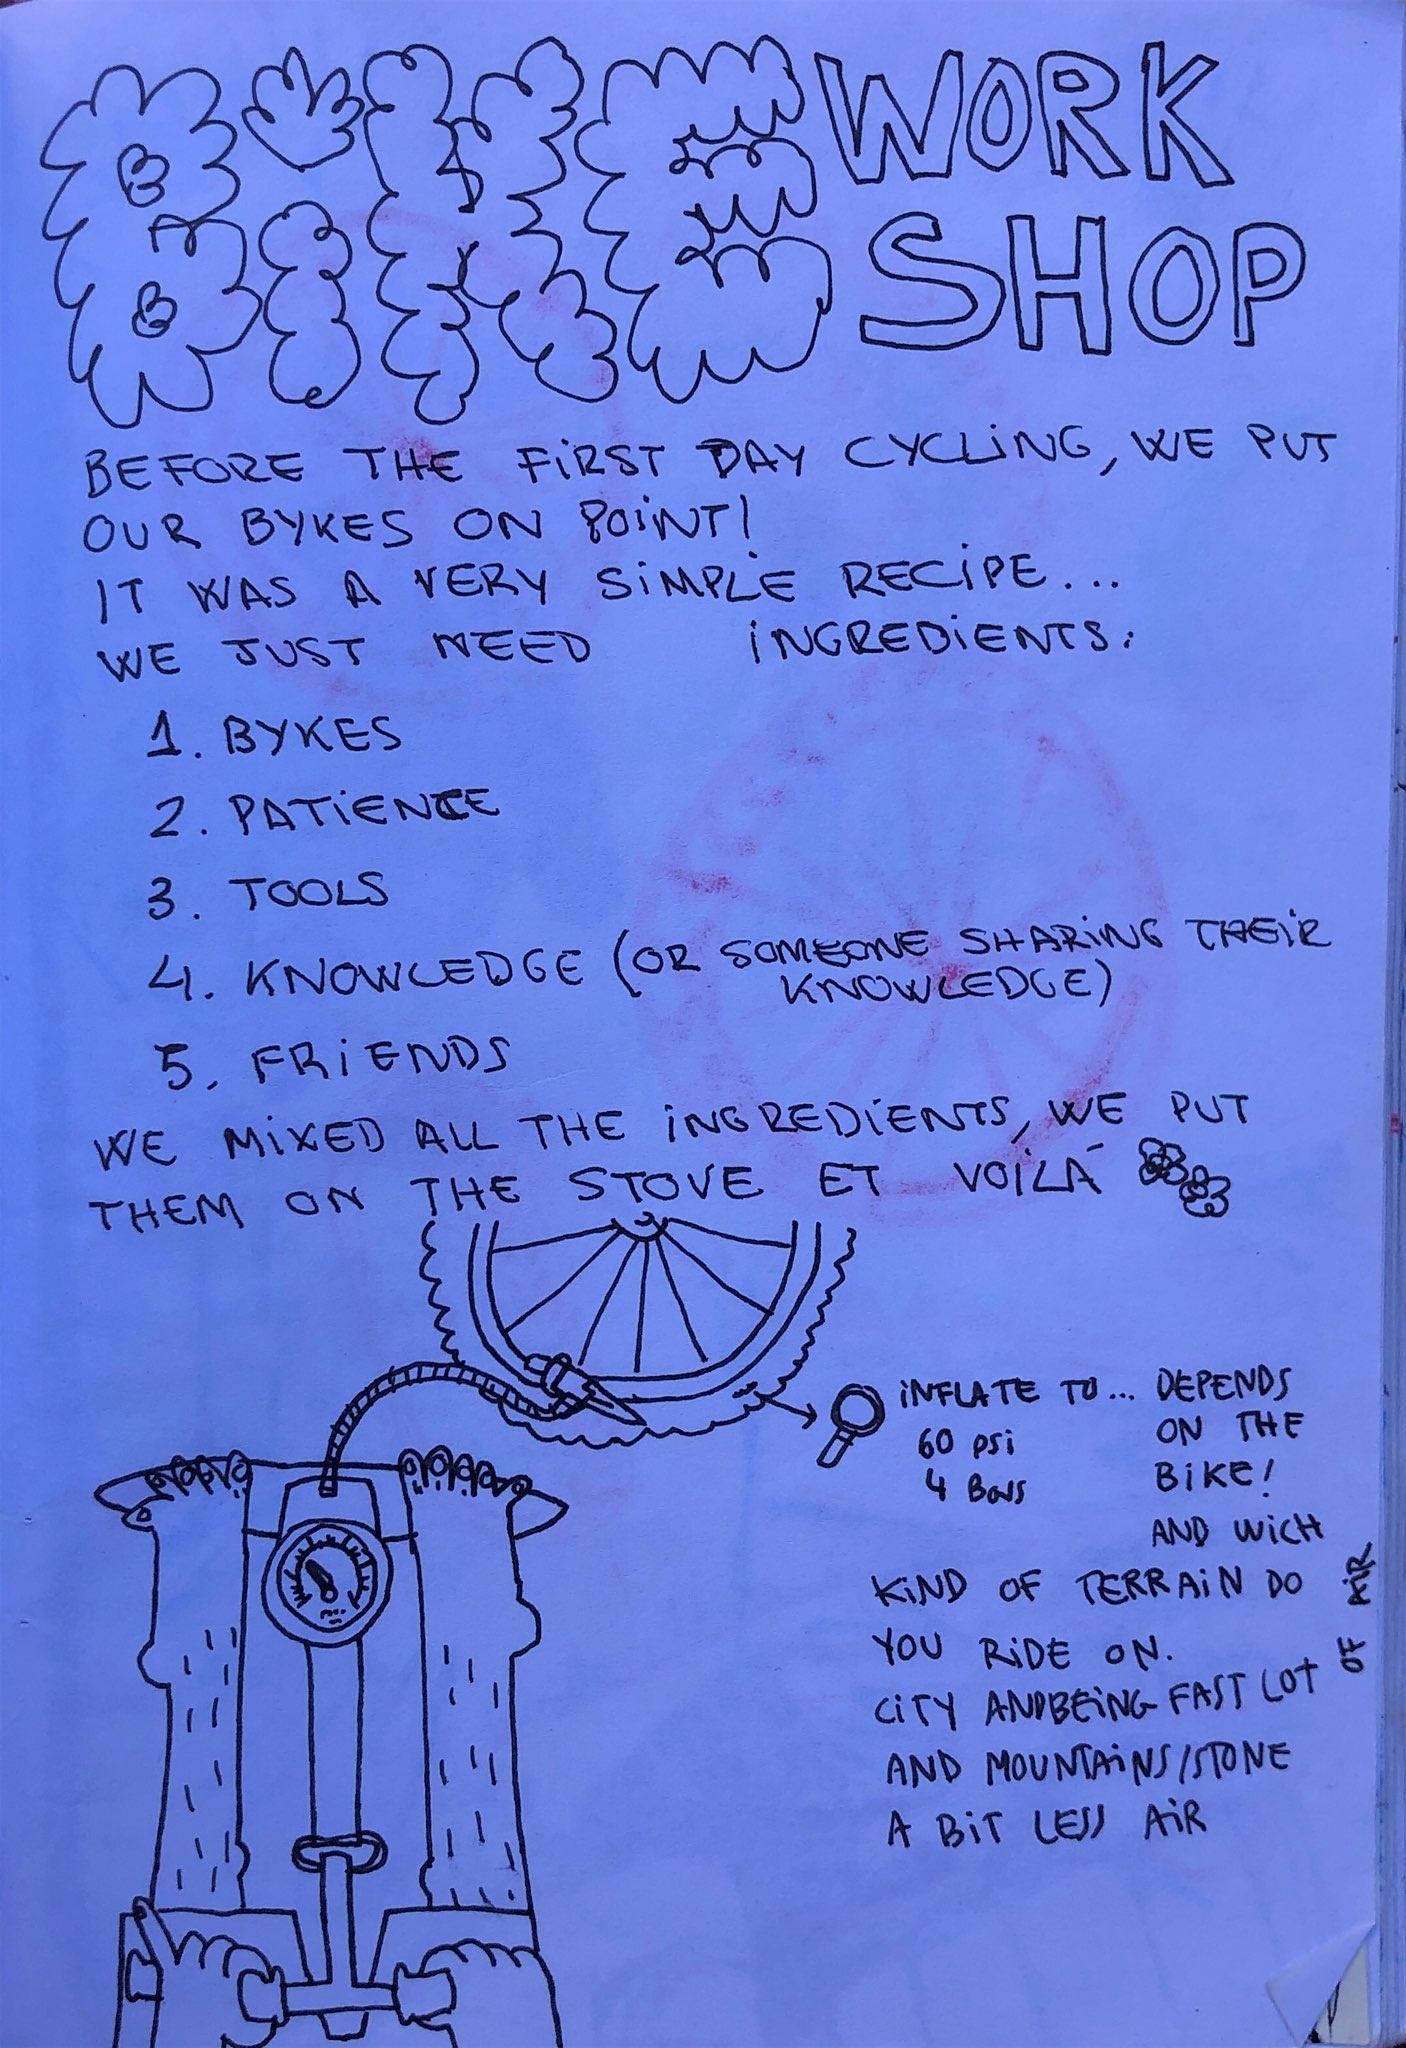 BIKE WORK
SHOP
BEFORE THE FIRST DAY CYCLING, WE PUT
OUR BYKES ON POINT!
IT WAS A VERY SIMPLE RECIPE...
WE JUST NEED INGREDIENTS:
1. BYKES
2. PATIENCE
3. TOOLS
4. KNOWLEDGE (OR SOMEONE SHARING THEIR
KNOWLEDGE)
5. FRIENDS
WE MIXED ALL THE INGREDIENTS, WE PUT
THEM ON THE STOVE ET VOILÁ
INFLATE TO... DEPENDS
60 psi ON THE
4 Bars BIKE!
AND WICH
KIND OF TERRAIN DO
YOU RIDE ON.
CITY AND BEING FAST LOT OF AIR
AND MOUNTAINS/STONE
A BIT LESS AIR